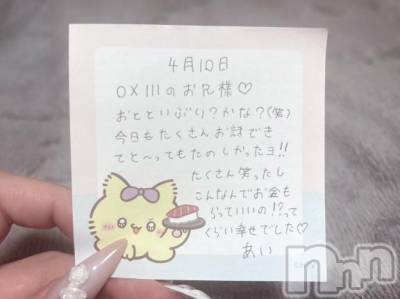 4月10日
OX111のお兄様♡
おとといぶり?かな?(笑)
今日もたくさんお話でき
てと〜ってもたのしかったヨ!!
たくさん笑ったし
こんなんでお金も
らっていいの!?って
くらい幸せでした♡
あい
nnn